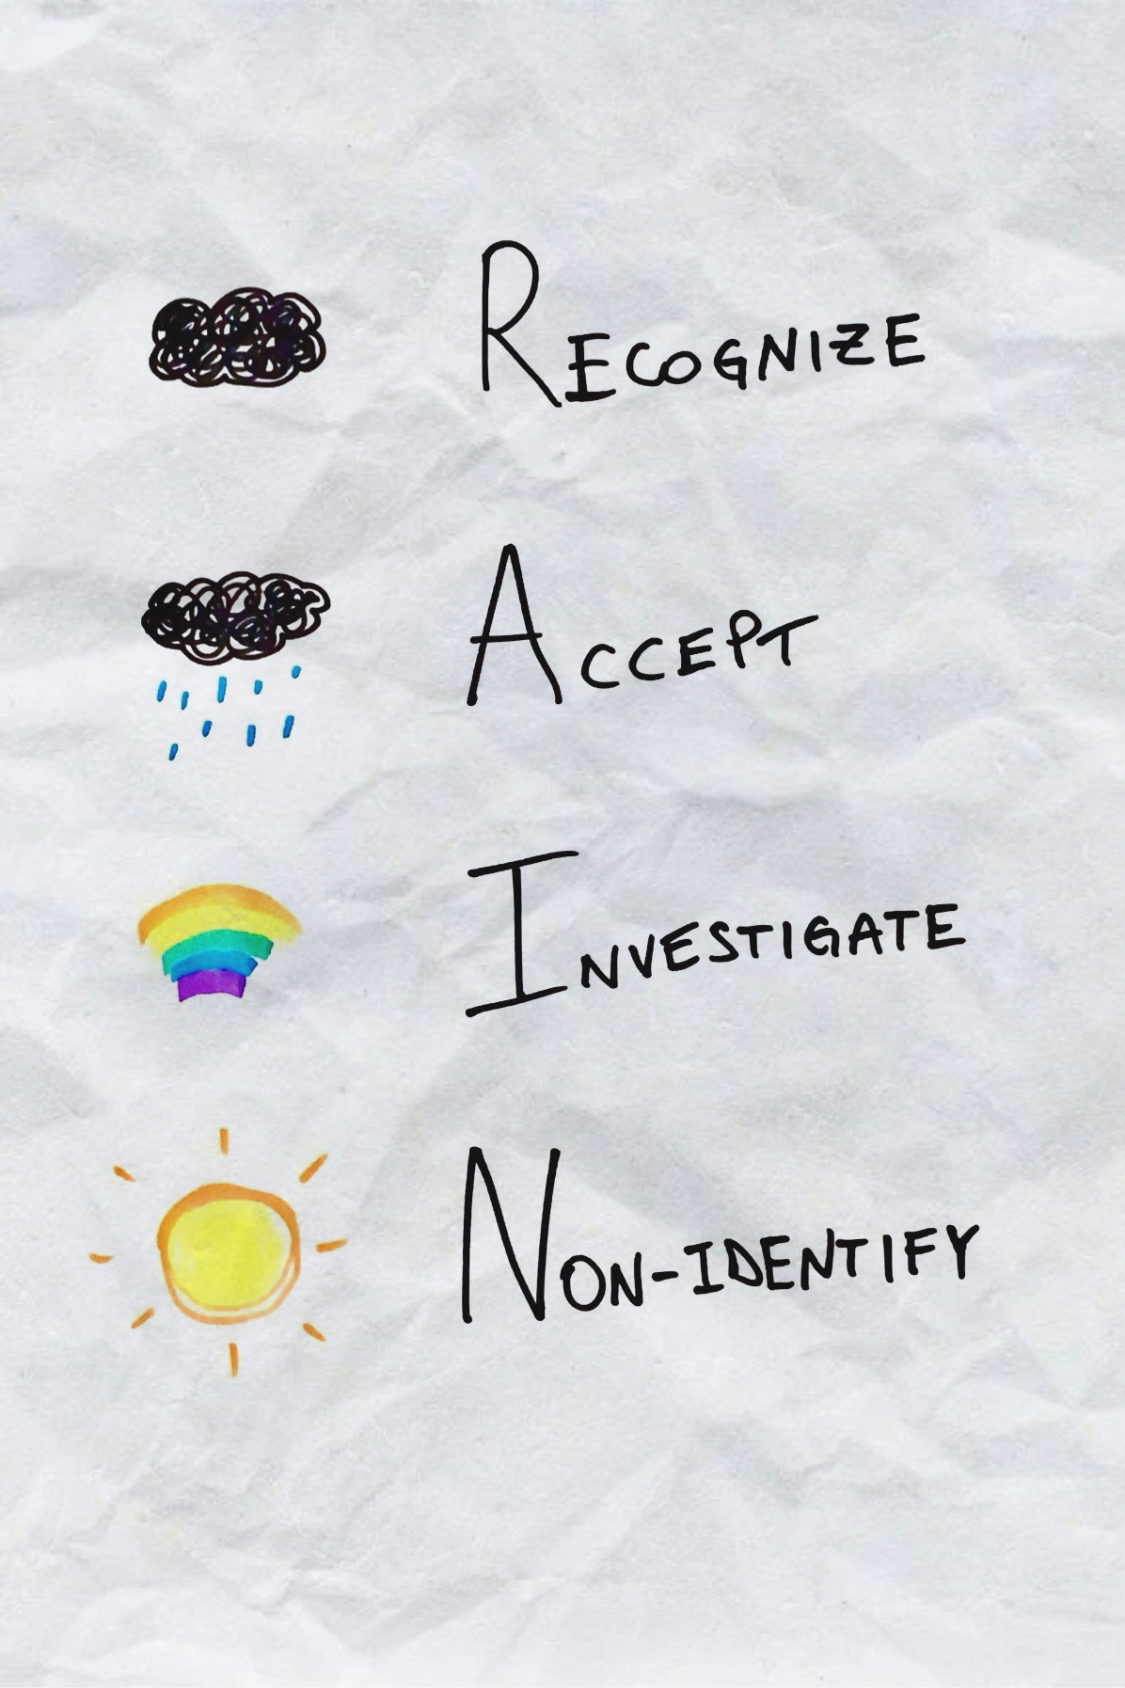 RECOGNIZE
ACCEPT
INVESTIGATE
NON-IDENTIFY